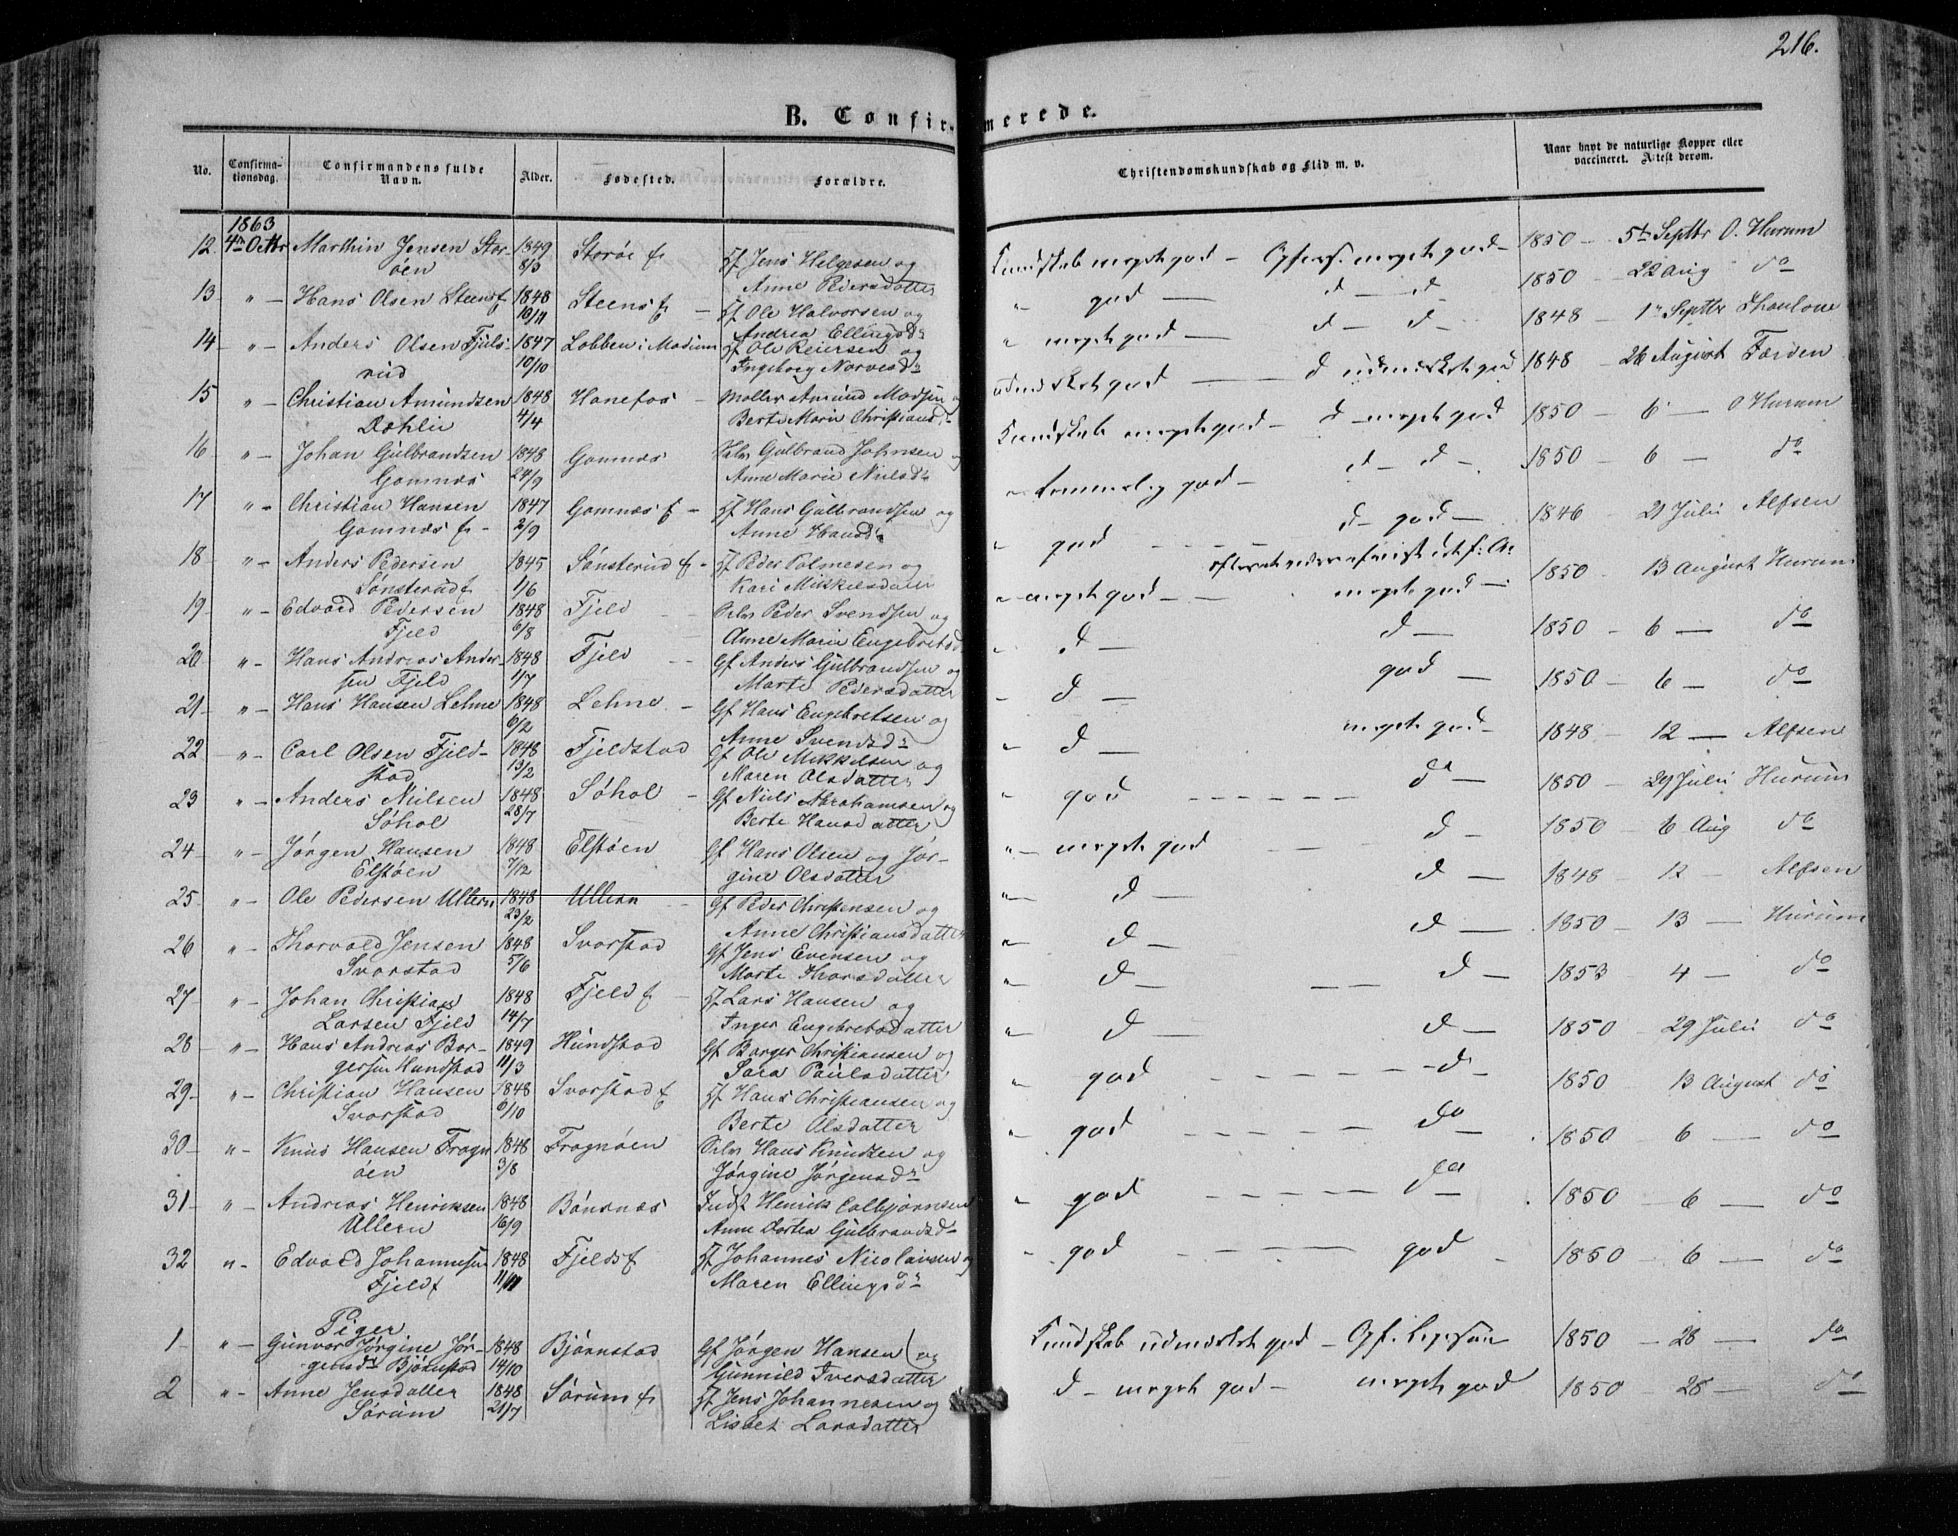 216.
B. Confirmerede.
No.
Confirma-
tionsdag.
Confirmandens fulde
Navn.
Alder.
Fødested.
Forældre.
Christendomskundskab og Flid m. v.
Naar havt de naturlige Kopper eller
vaccineret. Attest derom.
1863
12 4de Octbr Marthin Jensen Stor- 1849 Storøe Jens Helgesen og Kundskab meget god - meget god - 1850 - 5te Septbr O. Hurum
øen 8/3 Anne Pedersdatter
13 " - Hans Olsen Steens 1848 Steens Ole Halvorsen og " god - d - d 1850 22 Aug do
10/11 Andrea Ellingsd.
14 " - Anders Olsen Fjuls- 1847 Lobben i Modum Ole Reiersen og " meget god - d - d - 1848 - 1ste Septbr Thaulow
rud 10/10 Ingeborg
15 " - Christian Amundsen 1848 Hønefos - Møller Amund Madsen og udmærket god - d udmærket god 1848 - 26 August Færden
Dæhlie 4/4 Berte Marie Christiansd.
16 " - Johan Gulbrandsen 1848 Gomnæs Gulbrand Johnsen og Kundskab meget god - d - meget god 1850 - 6 - O Hurum
Gomnæs 24/9 Anne Marie Nielsd.
17 " - Christian Hansen 1847 Gomnæs Hans Gulbrandsen og " temmelig god - d - d - 1850 - 6 - do
Gomnæs 2/9 Anne Hansd.
18 " - Anders Pedersen 1845 Sønsterud Peder Polmesen og " god - d - god - 1846 21 Julii Alfsen
Sønsterud 1/6 Kari Mikkelsdatter
19 " - Edvard Pedersen 1848 Fjeld - Peder Svendsen og - meget god - meget god - 1850 - 13 August Hurum
Fjeld 6/8 Anne Marie Engebretsd.
20 " - Hans Andreas Ander- 1848 Fjeld - Gf Anders Gulbrandsen og " d - d - 1850 - 6 - do
sen Fjeld 1/7 Marte Pedersdatter
21 " - Hans Hansen Lehne 1848 Lehne - Gf Hans Engebretsen og - d - god - 1850 - 6 - do
6/2 Anne Svendsd.
22 " - Carl Olsen Fjeld- 1848 Fjeldstad Gf Ole Mikkelsen og " d - meget god - 1848 - 12 - Alfsen
stad 13/2 Maren Olsdatter
23 " - Anders Nielsen 1848 Søhol - Gf Niels Abrahamsen og " god - do - 1850 - 29 Julii Hurum
Søhol 28/7 Berte Hansdatter
24 " - Jørgen Hansen 1848 Elstøen Gf Hans Olsen og Jør- " - meget god - d - 1850 - 6 Aug do
Elstøen 7/12 gine Olsdatter
25 " - Ole Pedersen Ullern 1848 Ullern Gf Peder Christensen og " d - d - 1848 - 12 - Alfsen
23/2 Anne Christiansdatter
26 " - Thorvald Jensen 1848 Svarstad Gf Jens Evensen og " d - d - 1850 - 13 - Hurum
Svarstad 5/6 Marte Thorsdatter
27 " - Johan Christian 1848 Fjeld - Lars Hansen og " d - d - 1853 - 4 - do
Larsen Fjeld 14/7 Inger Engebretsdatter
28 " - Hans Andreas Bor- 1849 Hundstad Gf Borger Christiansen og " d - d - 1850 - 29 Julii do
gersen Hundstad 11/3 Sara Paulsdatter
29 " - Christian Hansen 1848 Svarstad Hans Christiansen og " god - d - 1850 - 13 August do
Svarstad 6/10 Berte Olsdatter
30 " - Knud Hansen Frogn 1848 Frognøen Hans Knudsen og " god - do - 1850 - 6 - do
øen 3/8 Jørgine Jørgensd.
31 " - Andreas Henriksen 1848 Bønsnæs Inds Henrik Colbjørnsen " god - do 1850 - 6 - do
Ullern 16/9 Anne Dortea Gulbrandsd.
32 " - Edvard Johannesen 1848 Fjelds Johannes Nicolaisen og " god - god - 1850 - 6 - do
Fjeld 11/11 Maren Ellingsd.
Piger
1 " - Gunvor Jørgine Jør- 1848 Bjørnstad Gf Jørgen Hansen og Kundskab udmærket god - 1850 - 28 - do
gensd. Bjørnstad 14/10 Gunnild Iversdatter
2 " - Anne Jensdatter 1848 Sørum Jens Johannesen og d - meget god - meget god 1850 - 28 - do
Sørum 21/7 Lisbet Larsdatter